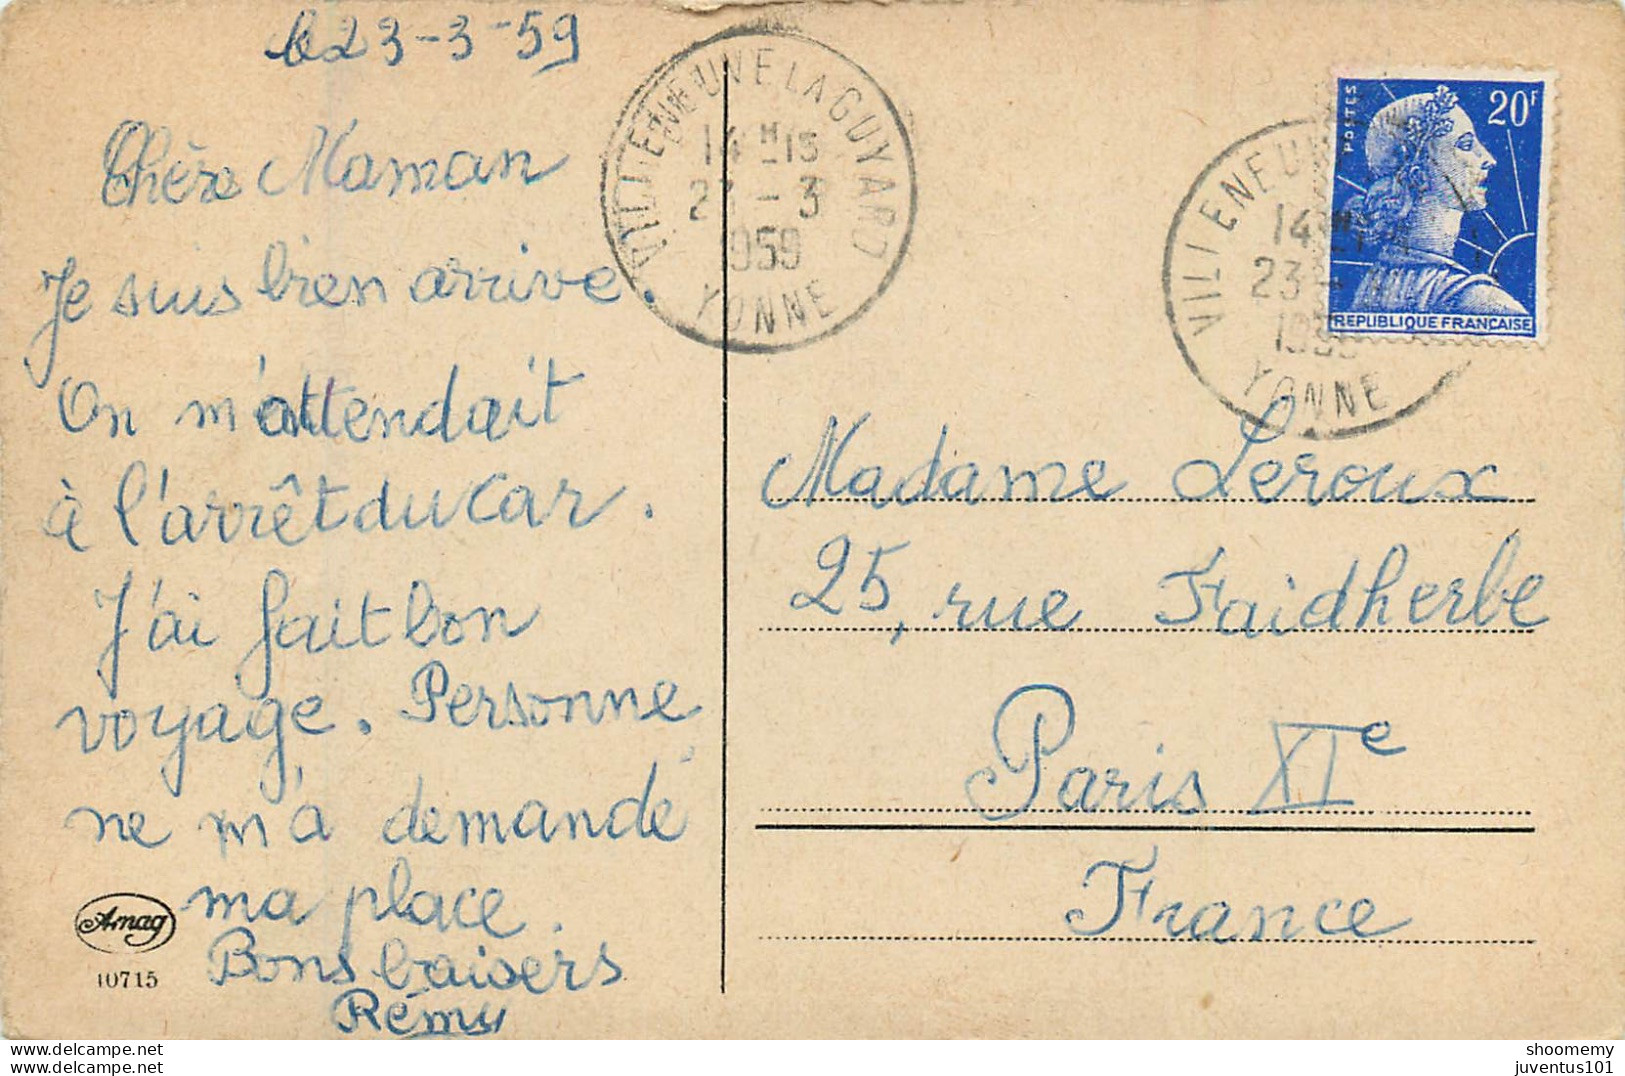 le 23-3-59
Chère Maman
Je suis bien arrivé.
On m'attendait
à l'arrêt du car.
J'ai fait bon
voyage. Personne
ne m'a demandé
ma place.
Bons baisers
Rémy
Amag
10715
VILLENEUVE LA GUYARD
14 H 15
23 - 3
1959
YONNE
VILLENEUVE
14 H
23 -
YONNE
POSTES
20F
REPUBLIQUE FRANÇAISE
Madame Leroux
25, rue Faidherbe
Paris XIe
France
www.delcampe.net
your e-mail
shoomemy
juventus101